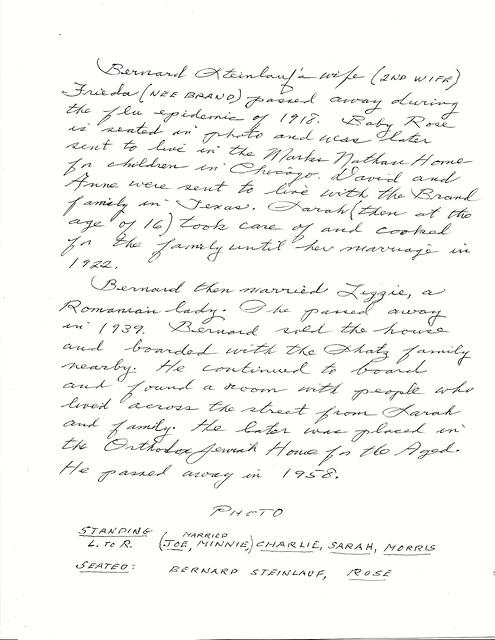 Bernard Steinlauf's wife (2ND WIFE)
Frieda (NEE BRAND) passed away during
the flu epidemic of 1918. Baby Rose
is seated in photo and was later
sent to live in the Marks Nathan Home
for children in Chicago. David and
Anne were sent to live with the Brand
family in Texas. Sarah (then at the
age of 16) took care of and cooked
for the family until her marriage in
1922.
Bernard then married Lizzie, a
Romanian lady. She passed away
in 1939. Bernard sold the house
and boarded with the Shatz family
nearby. He continued to board
and found a room with people who
lived across the street from Sarah
and family. He later was placed in
the Orthodox Jewish Home for the Aged.
He passed away in 1958.
PHOTO
STANDING
L. TO R. (JOE, MINNIE,) MARRIED CHARLIE, SARAH, MORRIS
SEATED: BERNARD STEINLAUF, ROSE